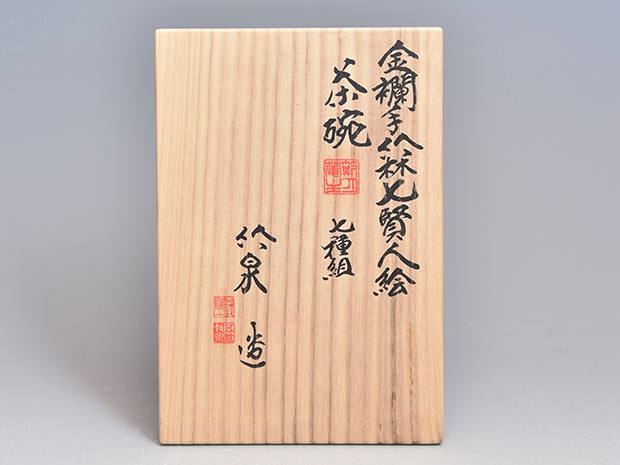 金襴手竹林七賢人絵
茶碗
七種組
竹泉 造